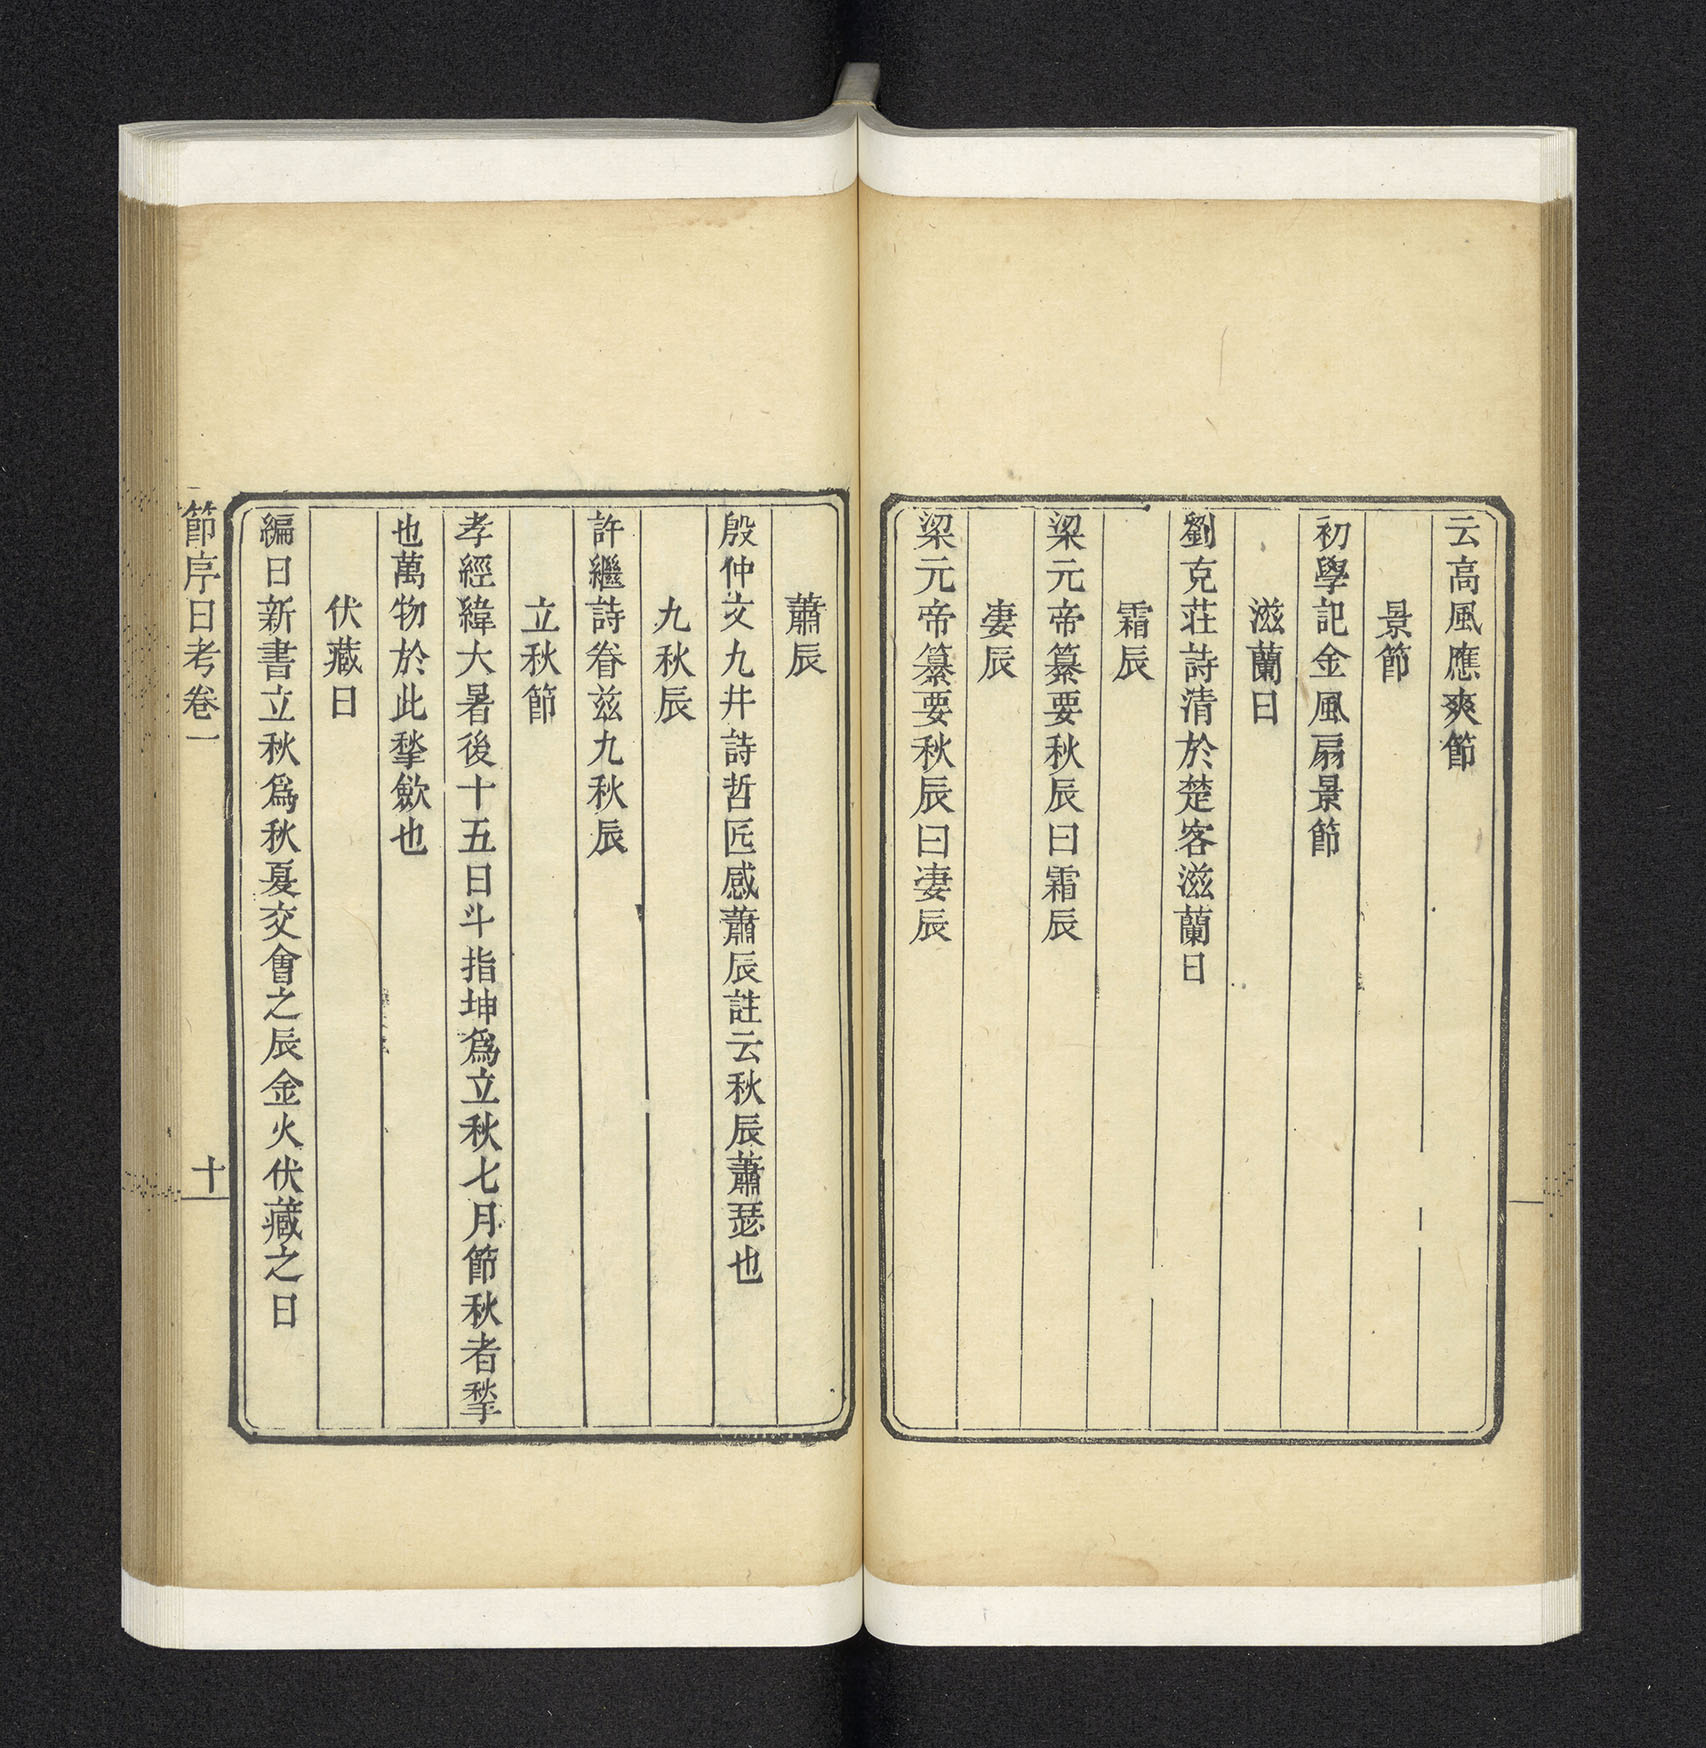 云高風應爽節
景節
初學記金風扇景節
滋蘭日
劉克莊詩清於楚客滋蘭日
霜辰
梁元帝纂要秋辰曰霜辰
凄辰
梁元帝纂要秋辰曰凄辰
蕭辰
殷仲文九井詩哲匠感蕭辰註云秋辰蕭瑟也
九秋辰
許繼詩眷兹九秋辰
立秋節
孝經緯大暑後十五日斗指坤爲立秋七月節秋者揫
也萬物於此揫歛也
伏藏日
編日新書立秋爲秋夏交會之辰金火伏藏之日
節序日考卷一
十